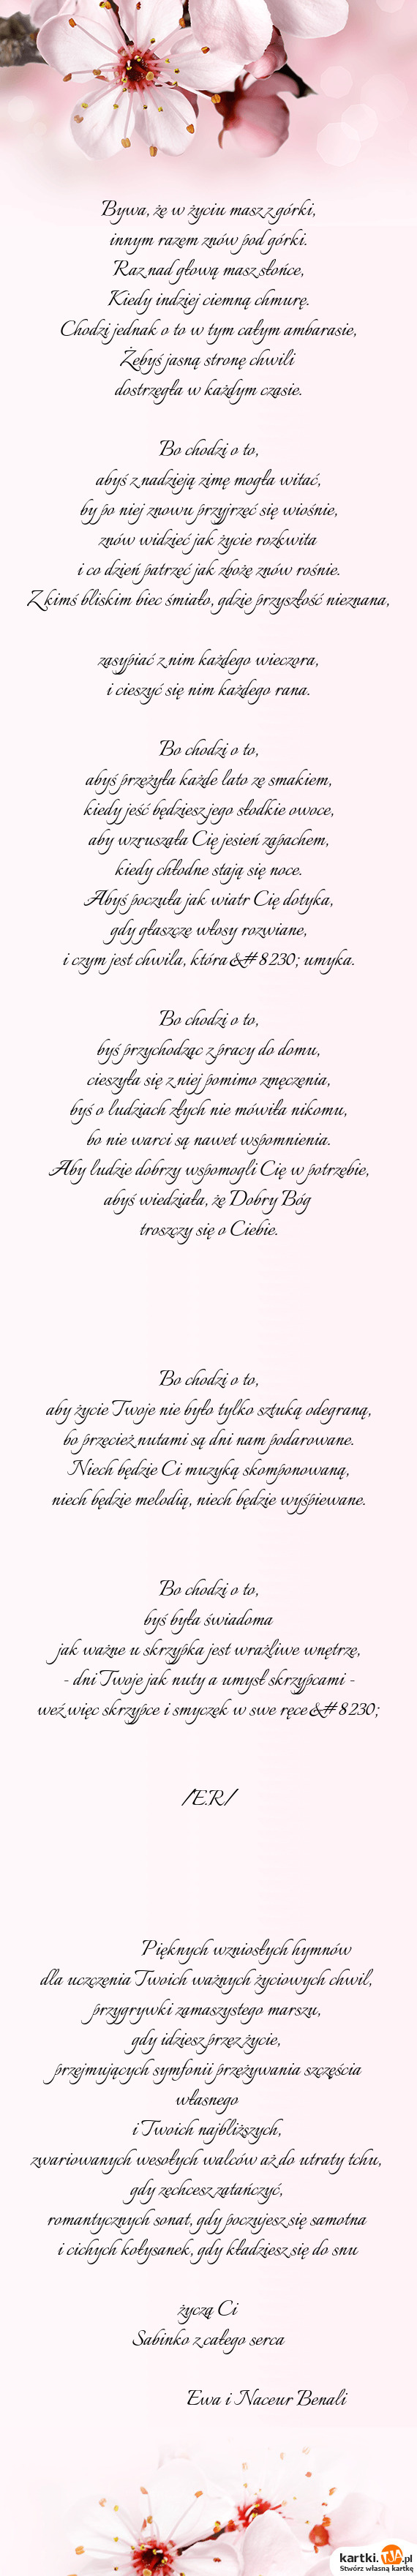 Bywa, że w życiu masz z górki,
innym razem znów pod górki.
Raz nad głową masz słońce,
Kiedy indziej ciemną chmurę.
Chodzi jednak o to w tym całym ambarasie,
Żebyś jasną stronę chwili
dostrzegła w każdym czasie.
Bo chodzi o to,
abyś z nadzieją zimę mogła witać,
by po niej znowu przyjrzeć się wiośnie,
znów widzieć jak życie rozkwita
i co dzień patrzeć jak zboże znów rośnie.
Z kimś bliskim biec śmiało, gdzie przyszłość nieznana,
zasypiać z nim każdego wieczora,
i cieszyć się nim każdego rana.
Bo chodzi o to,
abyś przeżyła każde lato ze smakiem,
kiedy jeść będziesz jego słodkie owoce,
aby wzruszała Cię jesień zapachem,
kiedy chłodne stają się noce.
Abyś poczuła jak wiatr Cię dotyka,
gdy głaszcze włosy rozwiane,
i czym jest chwila, która &#8230; umyka.
Bo chodzi o to,
byś przychodząc z pracy do domu,
cieszyła się z niej pomimo zmęczenia,
byś o ludziach złych nie mówiła nikomu,
bo nie warci są nawet wspomnienia.
Aby ludzie dobrzy wspomogli Cię w potrzebie,
abyś wiedziała, że Dobry Bóg
troszczy się o Ciebie.
Bo chodzi o to,
aby życie Twoje nie było tylko sztuką odegraną,
bo przecież nutami są dni nam podarowane.
Niech będzie Ci muzyką skomponowaną,
niech będzie melodią, niech będzie wyśpiewane.
Bo chodzi o to,
byś była świadoma
jak ważne u skrzypka jest wrażliwe wnętrze,
- dni Twoje jak nuty a umysł skrzypcami -
weź więc skrzypce i smyczek w swe ręce &#8230;
/E.R./
Pięknych wzniosłych hymnów
dla uczczenia Twoich ważnych życiowych chwil,
przygrywki zamaszystego marszu,
gdy idziesz przez życie,
przejmujących symfonii przeżywania szczęścia
własnego
i Twoich najbliższych,
zwariowanych wesołych walców aż do utraty tchu,
gdy zechcesz zatańczyć,
romantycznych sonat, gdy poczujesz się samotna
i cichych kołysanek, gdy kładziesz się do snu
życzą Ci
Sabinko z całego serca
Ewa i Naceur Benali
kartki.TJA.pl
Stwórz własną kartkę